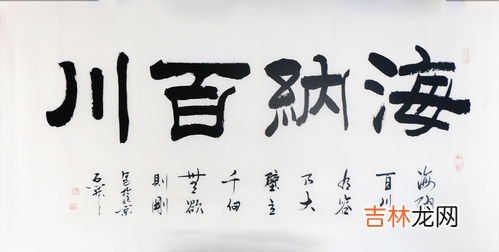 海納百川
海納
百川
有容
乃大
壁立
千仞
無欲
則剛
吉林龙网